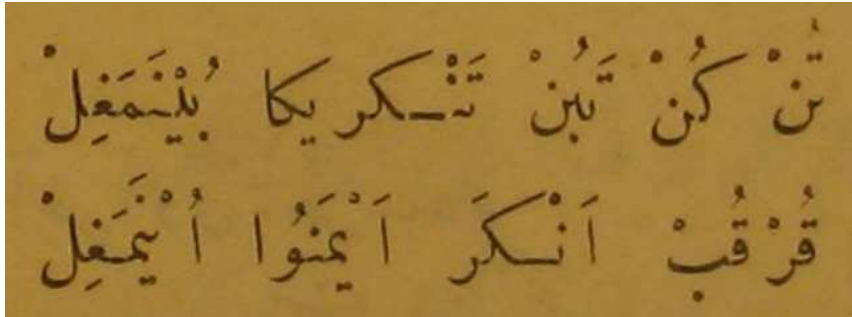 تُنْ كُنْ تَبُنْ تَنْكريكا بُيْنَمَغِلْ
قُرْقُبْ اَنْكَرَ اَيْمَنُوا اُيْنَمَغِلْ